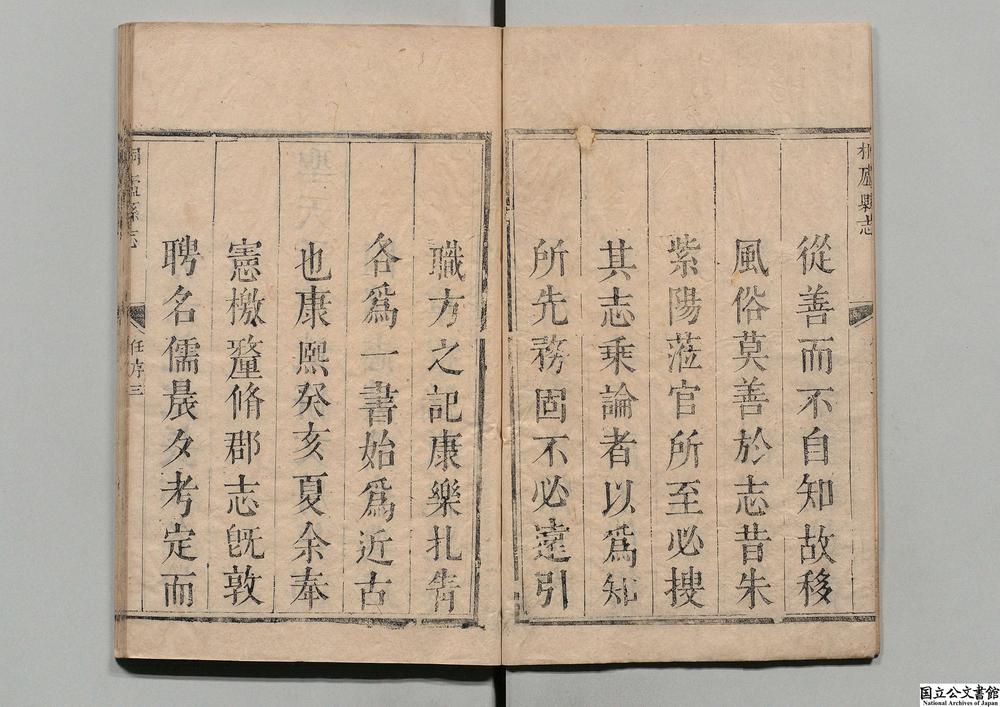 桐廬縣志
從善而不自知故移
風俗莫善於志昔朱
紫陽蒞官所至必搜
其志乘論者以為知
所先務固不必遠引
職方之記康樂扎青
各為一書始為近古
也康熙癸亥夏余奉
憲檄釐脩郡志旣敦
聘名儒晨夕考定而
桐廬縣志
任序三
国立公文書館
National Archives of Japan